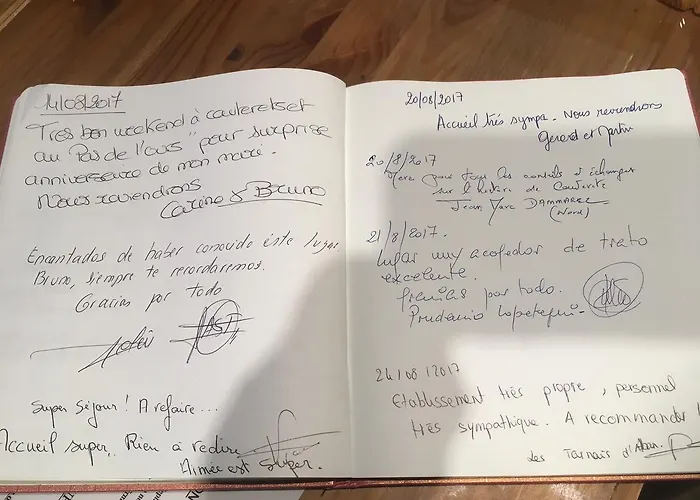 14/08/2017
Très bon weekend à cauterets et
au "Pas de l'ours" pour surprise
anniversaire de mon mari.
Nous reviendrons
Carine & Bruno
Encantados de haber conocido éste lugar
Bruno, siempre te recordaremos.
Gracias por todo
Super séjour ! A refaire...
Accueil super.. Rien à redire
Aimée est super.
20/08/2017
Accueil très sympa. Nous reviendrons
Gerard et Martin
20/8/2017
Merci pour tous les conseils et échanges
sur l'histoire de Cauterets
Jean Marc DAMMAREZ
(Nord)
21/8/2017.
Lugar muy acojedor de trato
excelente.
Gracias por todo.
Prudencio Lopetegui.
24/08/2017
Etablissement très propre, personnel
très sympathique. A recommander !
Les Tarnais d'Alban.